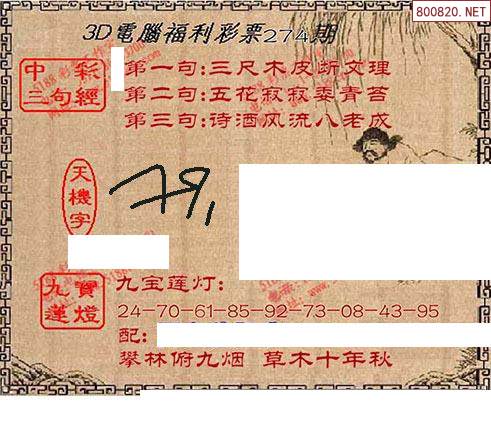 800820.NET
3D電腦福利彩票274期
中彩
三句經
第一句:三尺木皮断文理
第二句:五花寂寂委青苔
第三句:诗酒风流八老成
天機字
九寶
蓮燈
九宝莲灯:
24-70-61-85-92-73-08-43-95
配:
攀林俯九烟 草木十年秋